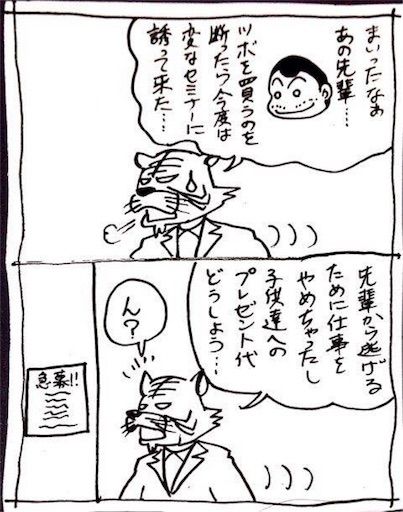 まいったなぁ
あの先輩…
ツボを買うのを
断ったら今度は
変なセミナーに
誘って来た…
先輩から逃げる
ために仕事を
やめちゃったし
子供達への
プレゼント代
どうしよう…
ん?
急募!!